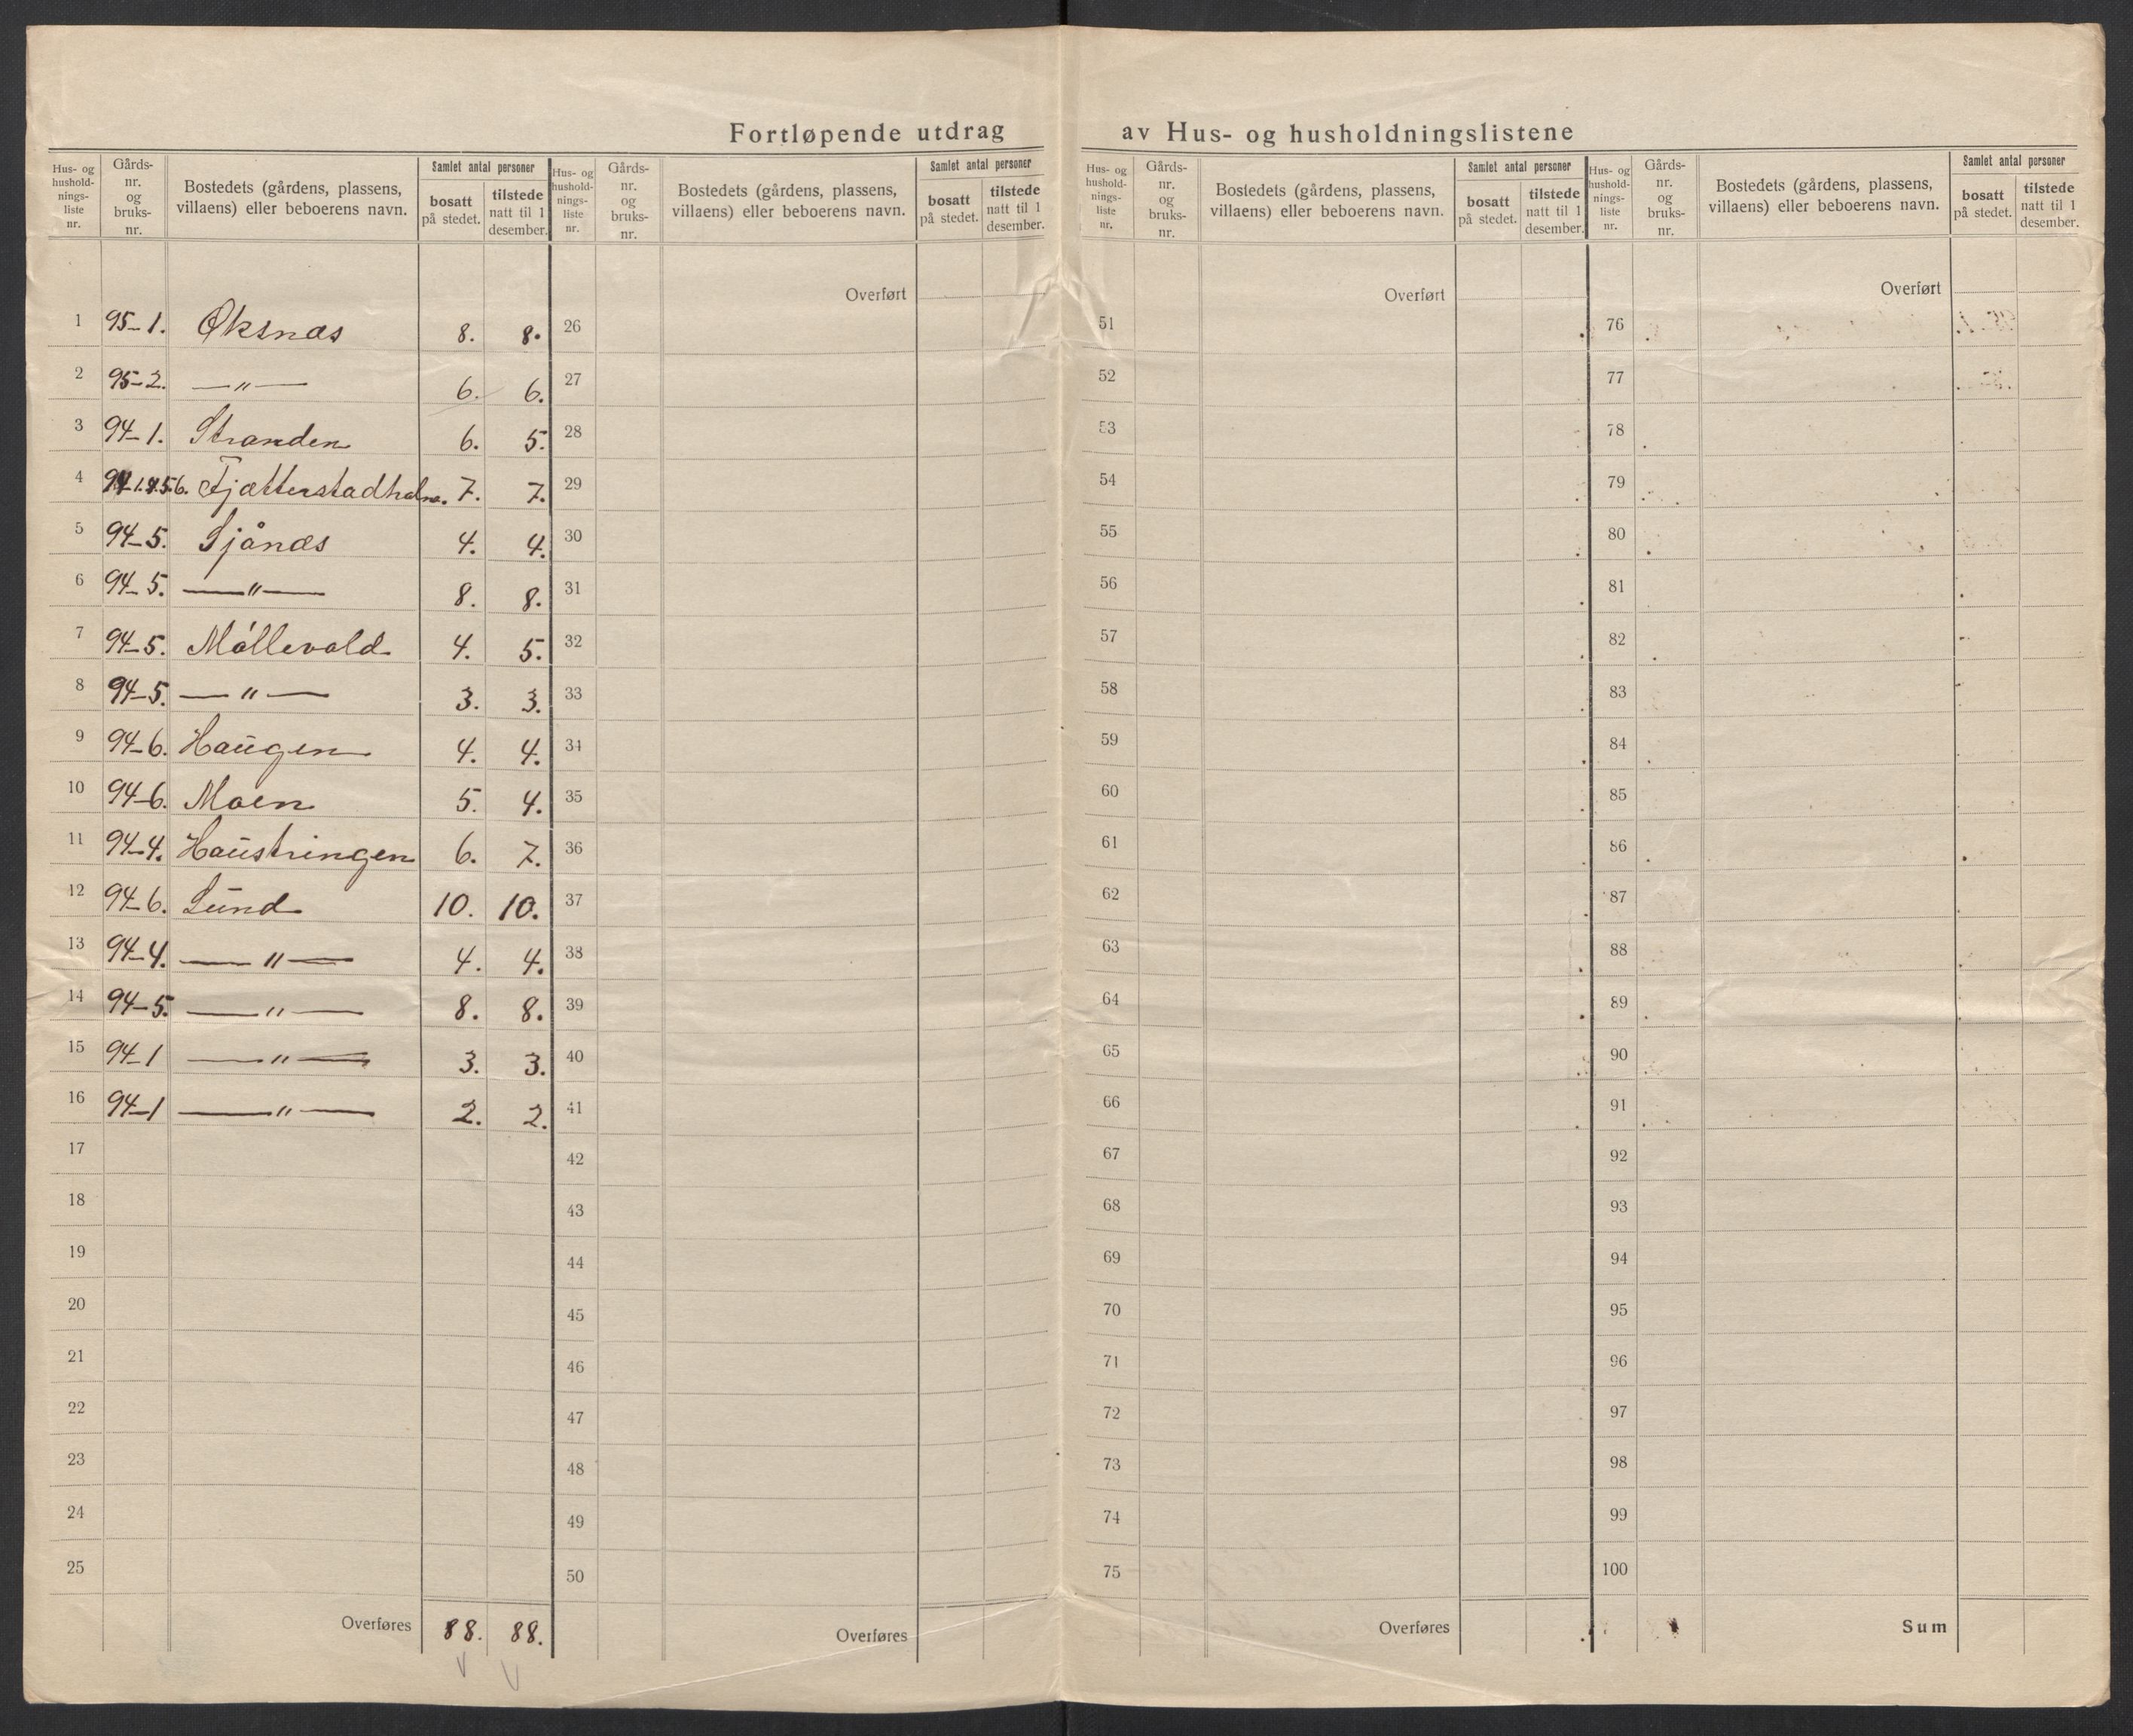 Fortløpende utdrag av Hus- og husholdningslistene
Hus- og hushold- nings- liste nr. | Gårds- nr. og bruks- nr. | Bostedets (gårdens, plassens, villaens) eller beboerens navn. | Samlet antal personer | bosatt på stedet. | tilstede natt til 1 desember.
1 95-1. Øksnæs 8. 8.
2 95-2. —"— 6. 6.
3 94-1. Stranden 6. 5.
4 94-1.4.5.6. Fjætterstadhalm. 7. 7.
5 94-5. Sjånæs 4. 4.
6 94-5. —"— 8. 8.
7 94-5. Móllevold 4. 5.
8 94-5. —"— 3. 3.
9 94-6. Haugen 4. 4.
10 94-6. Moen 5. 4.
11 94-4. Haustringen 6. 7.
12 94-6. Lund 10. 10.
13 94-4. —"— 4. 4.
14 94-5. —"— 8. 8.
15 94-1 —"— 3. 3.
16 94-1 —"— 2. 2.
17
18
19
20
21
22
23
24
25
Overføres 88. 88.
Hus- og hushold- nings- liste nr. | Gårds- nr. og bruks- nr. | Bostedets (gårdens, plassens, villaens) eller beboerens navn. | Samlet antal personer | bosatt på stedet. | tilstede natt til 1 desember.
Overført
26
27
28
29
30
31
32
33
34
35
36
37
38
39
40
41
42
43
44
45
46
47
48
49
50
Overføres
Hus- og hushold- nings- liste nr. | Gårds- nr. og bruks- nr. | Bostedets (gårdens, plassens, villaens) eller beboerens navn. | Samlet antal personer | bosatt på stedet. | tilstede natt til 1 desember.
Overført
51
52
53
54
55
56
57
58
59
60
61
62
63
64
65
66
67
68
69
70
71
72
73
74
75
Overføres
Hus- og hushold- nings- liste nr. | Gårds- nr. og bruks- nr. | Bostedets (gårdens, plassens, villaens) eller beboerens navn. | Samlet antal personer | bosatt på stedet. | tilstede natt til 1 desember.
Overført
76
77
78
79
80
81
82
83
84
85
86
87
88
89
90
91
92
93
94
95
96
97
98
99
100
Sum